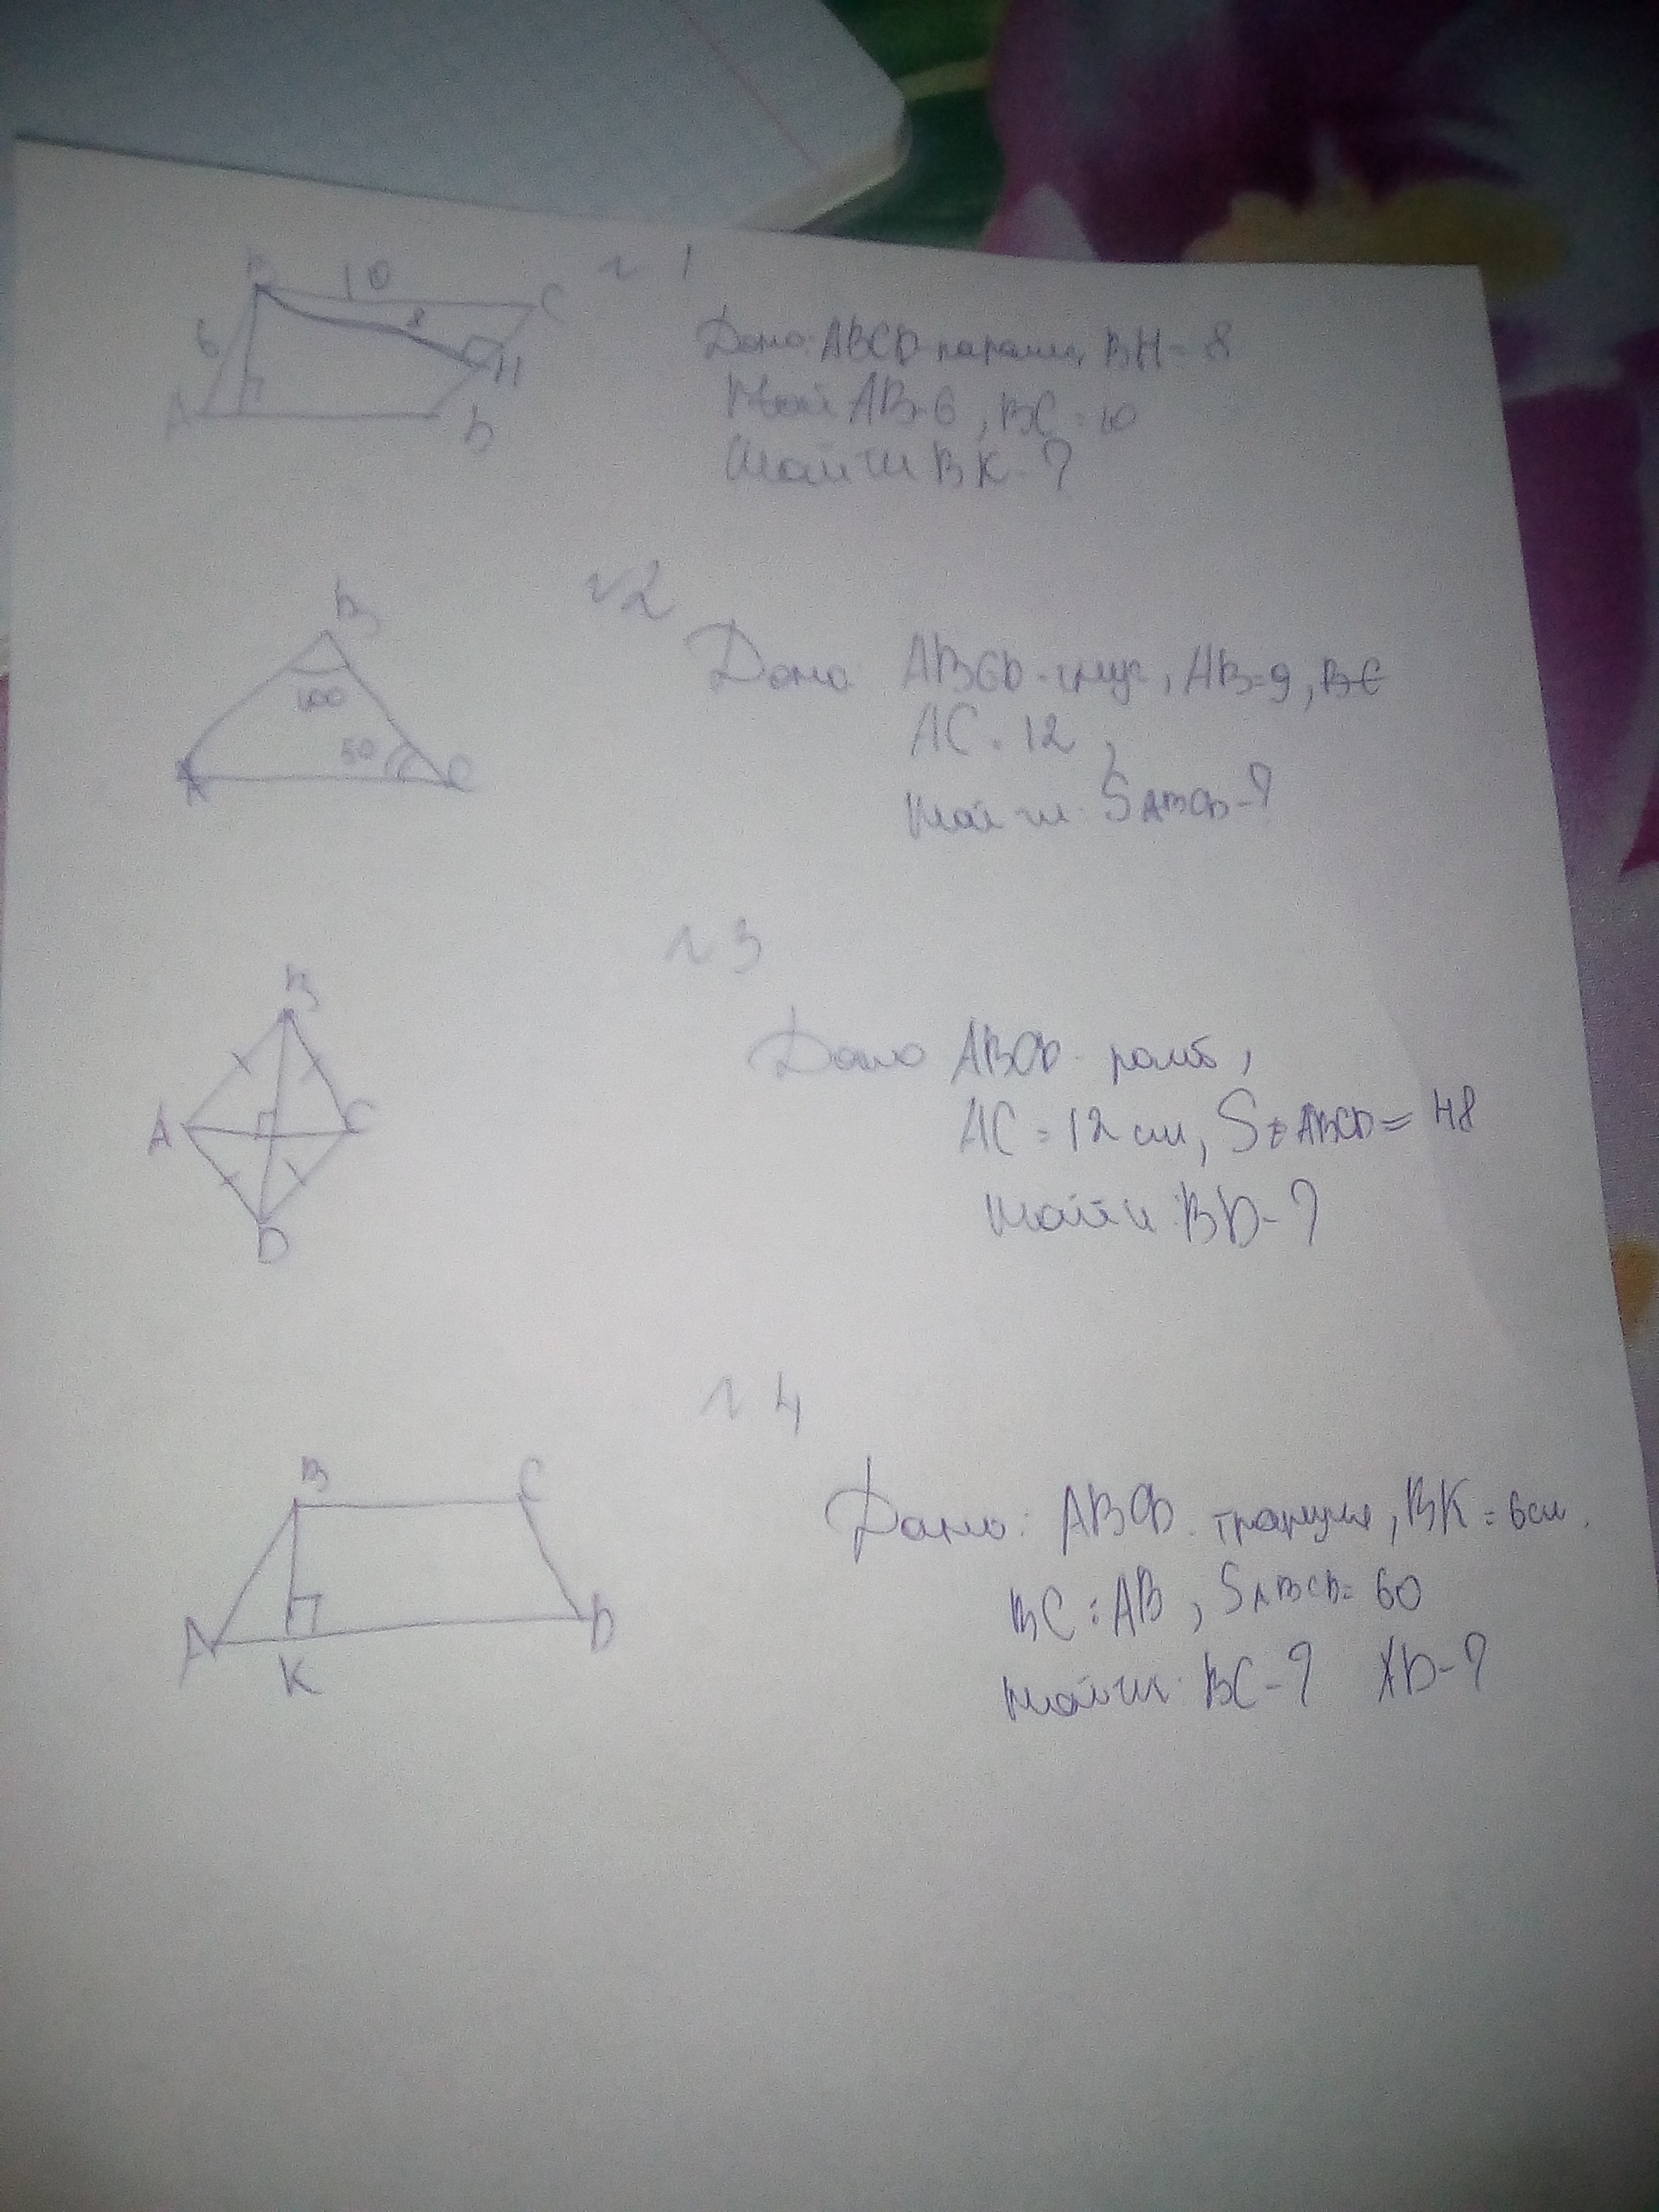 B 10 C
8
6
H
A D
N 1
Дано: ABCD - паралл, BH = 8
AB = 6, BC = 10
Найти BK - ?
B
100
50
A C
N 2
Дано: ABCD - , AB = 9, BC
AC = 12,
Найти: SABCD - ?
N 3
B
A C
D
Дано ABCD - ромб,
AC = 12 см, S ABCD = 48
Найти: BD - ?
N 4
B C
A D
K
Дано: ABCD - трапеция, BK = 6 см.
BC = AB, SABCD = 60
Найти: BC - ? AD - ?